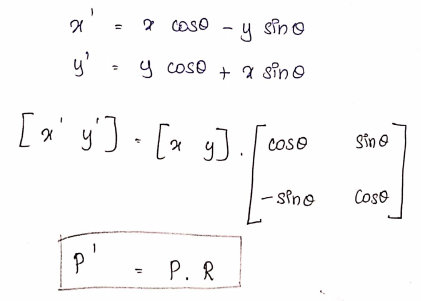 x' = x cosθ - y sinθ
y' = y cosθ + x sinθ
[x' y'] = [x y] . [cosθ sinθ
-sinθ cosθ]
P' = P. R